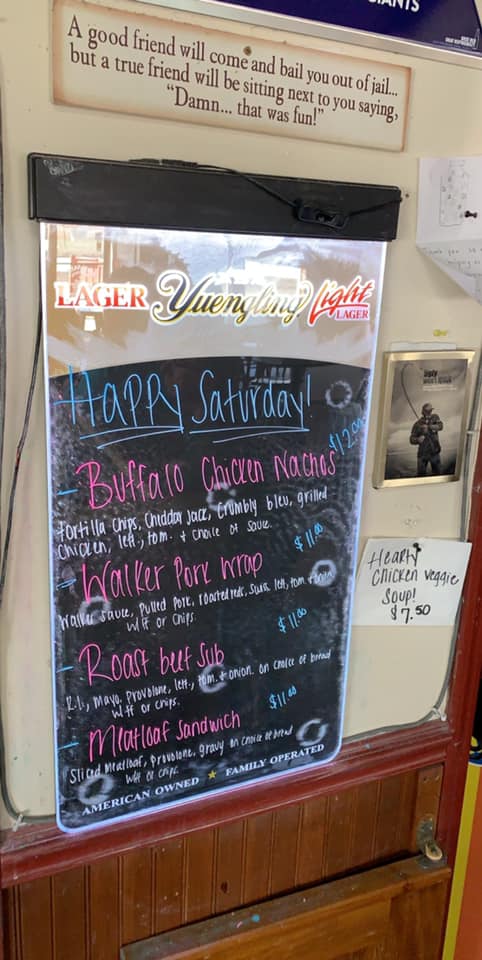 GIANTS
A good friend will come and bail you out of jail...
but a true friend will be sitting next to you saying,
"Damn... that was fun!"
LAGER Yuengling Light
LAGER
Happy Saturday!
- Buffalo Chicken Nachos $12.00
tortilla chips, Cheddar Jack, Crumbly bleu, grilled
Chicken, lett., tom. + choice of sauce.
- Walker Pork Wrap $11.00
Walker sauce, Pulled Pork, roasted reds, Swiss, lett, tom + onion
w/ ff or chips
- Roast beef Sub $11.00
R.L., mayo, Provolone, lett., tom. + onion. on choice of bread
w/ ff or chips.
- Meatloaf Sandwich $11.00
Sliced Meatloaf, provolone, gravy on choice of bread
w/ff or chips
AMERICAN OWNED ★ FAMILY OPERATED
Hearty
Chicken veggie
Soup!
$7.50